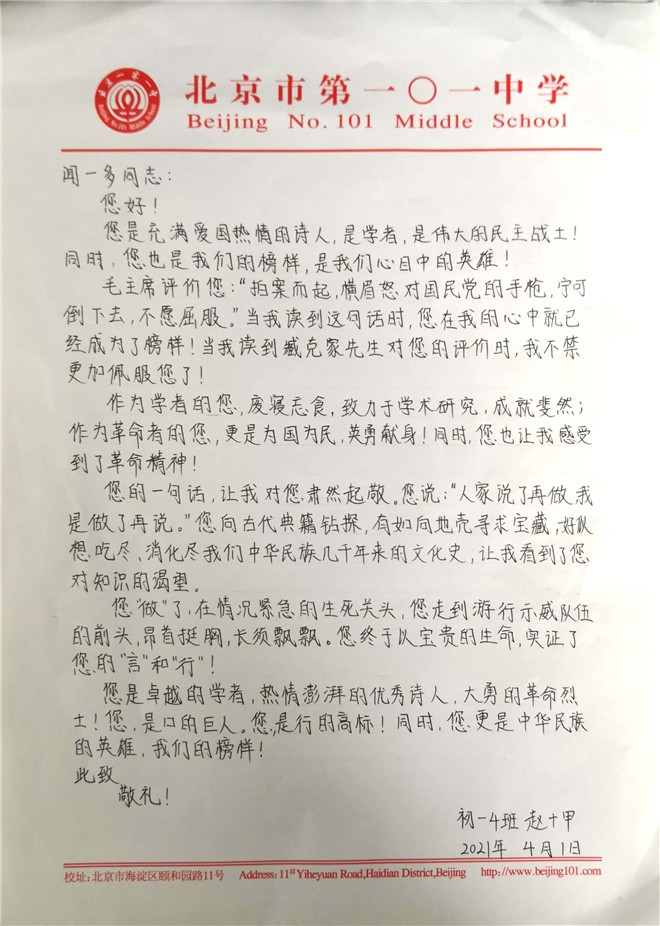 北京一零一中
Beijing No.101 Middle School
北京市第一〇一中学
Beijing No. 101 Middle School
闻一多同志：
您好！
您是充满爱国热情的诗人，是学者，是伟大的民主战士！
同时，您也是我们的榜样，是我们心目中的英雄！
毛主席评价您：“拍案而起，横眉怒对国民党的手枪，宁可
倒下去，不愿屈服。”当我读到这句话时，您在我的心中就已
经成为了榜样！当我读到臧克家先生对您的评价时，我不禁
更加佩服您了！
作为学者的您，废寝忘食，致力于学术研究，成就斐然；
作为革命者的您，更是为国为民，英勇献身！同时，您也让我感受
到了革命精神！
您的一句话，让我对您肃然起敬。您说：“人家说了再做，我
是做了再说。”您向古代典籍钻探，有如向地壳寻求宝藏，好似
想吃尽、消化尽我们中华民族几千年来的文化史，让我看到了您
对知识的渴望。
您“做”了，在情况紧急的生死关头，您走到游行示威队伍
的前头，昂首挺胸，长须飘飘。您终于以宝贵的生命，实证了
您的“言”和“行”！
您是卓越的学者，热情澎湃的优秀诗人，大勇的革命烈
士！您，是口的巨人。您，是行的高标！同时，您更是中华民族
的英雄，我们的榜样！
此致
敬礼！
初一4班 赵十甲
2021年 4月1日
校址：北京市海淀区颐和园路11号 Address: 11# Yiheyuan Road,Haidian District,Beijing http://www.beijing101.com